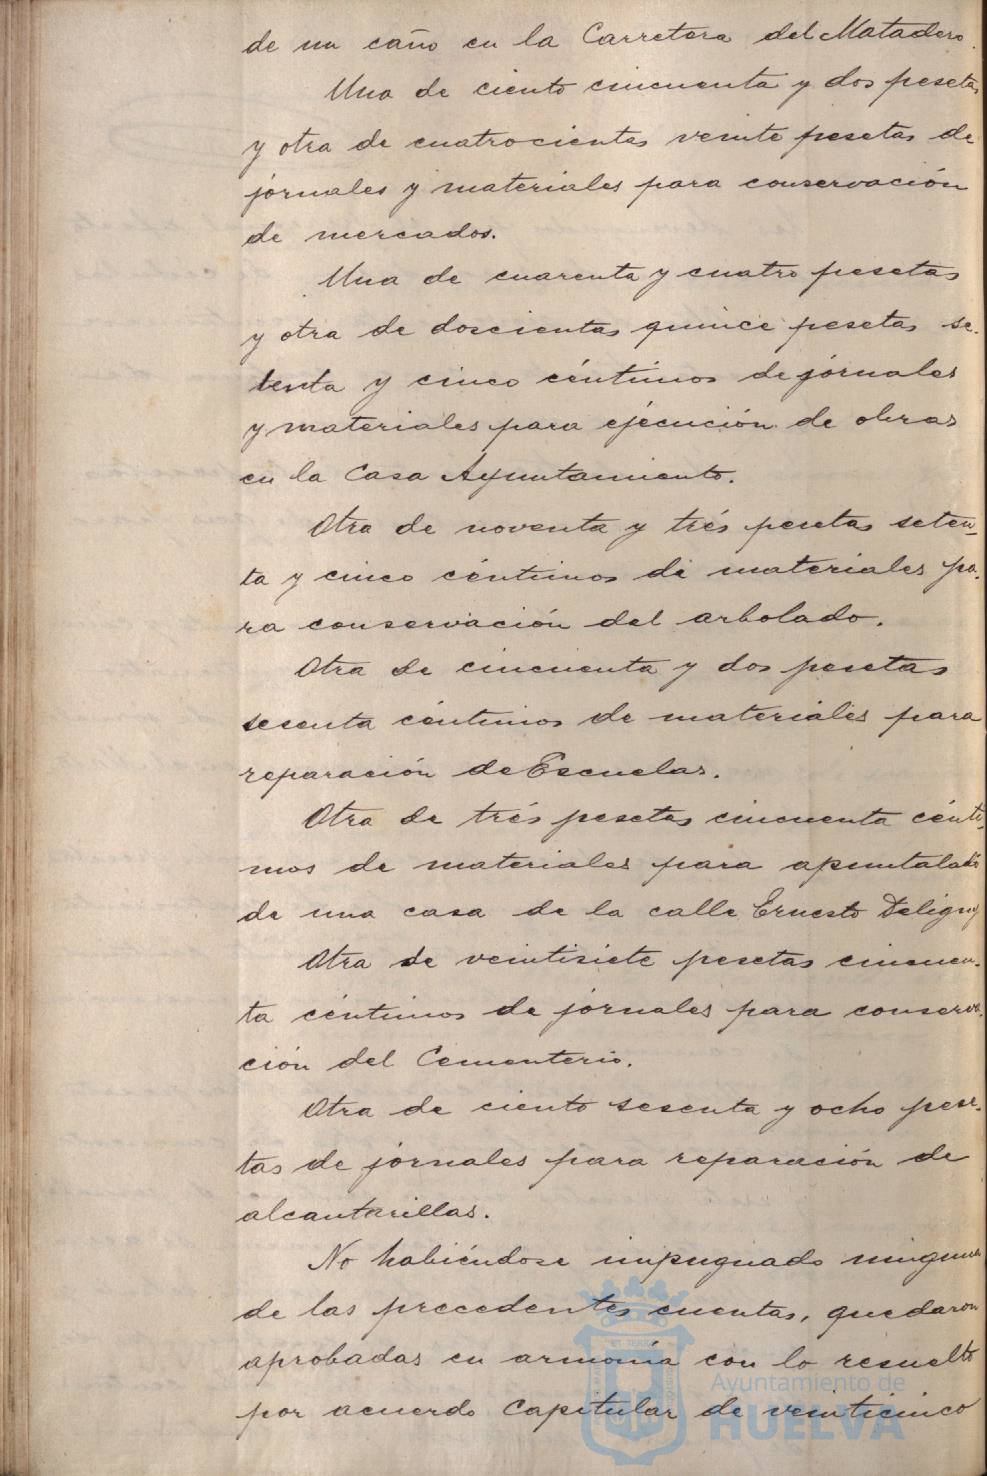 de un caño en la Carretera del Matadero.
Una de ciento cincuenta y dos pesetas
y otra de cuatrocientas veinte pesetas de
jornales y materiales para conservación
de mercados.
Una de cuarenta y cuatro pesetas
y otra de doscientas quince pesetas se-
tenta y cinco céntimos de jornales
y materiales para ejécución de obras
en la Casa Ayuntamiento.
Otra de noventa y trés pesetas seten-
ta y cinco céntimos de materiales pa-
ra conservación del arbolado.
Otra de cincuenta y dos pesetas
sesenta céntimos de materiales para
reparación de Escuelas.
Otra de trés pesetas cincuenta cénti-
mos de materiales para apuntalado
de una casa de la calle Ernesto Deligny
Otra de veintisiete pesetas cincuen-
ta céntimos de jornales para conserva-
ción del Cementerio.
Otra de ciento sesenta y ocho pese-
tas de jornales para reparación de
alcantarillas.
No habiéndose impugnado ninguna
de las precedentes cuentas, quedaron
aprobadas en armonía con lo resuelto
por acuerdo Capitular de veinticinco
Ayuntamiento de
HUELVA